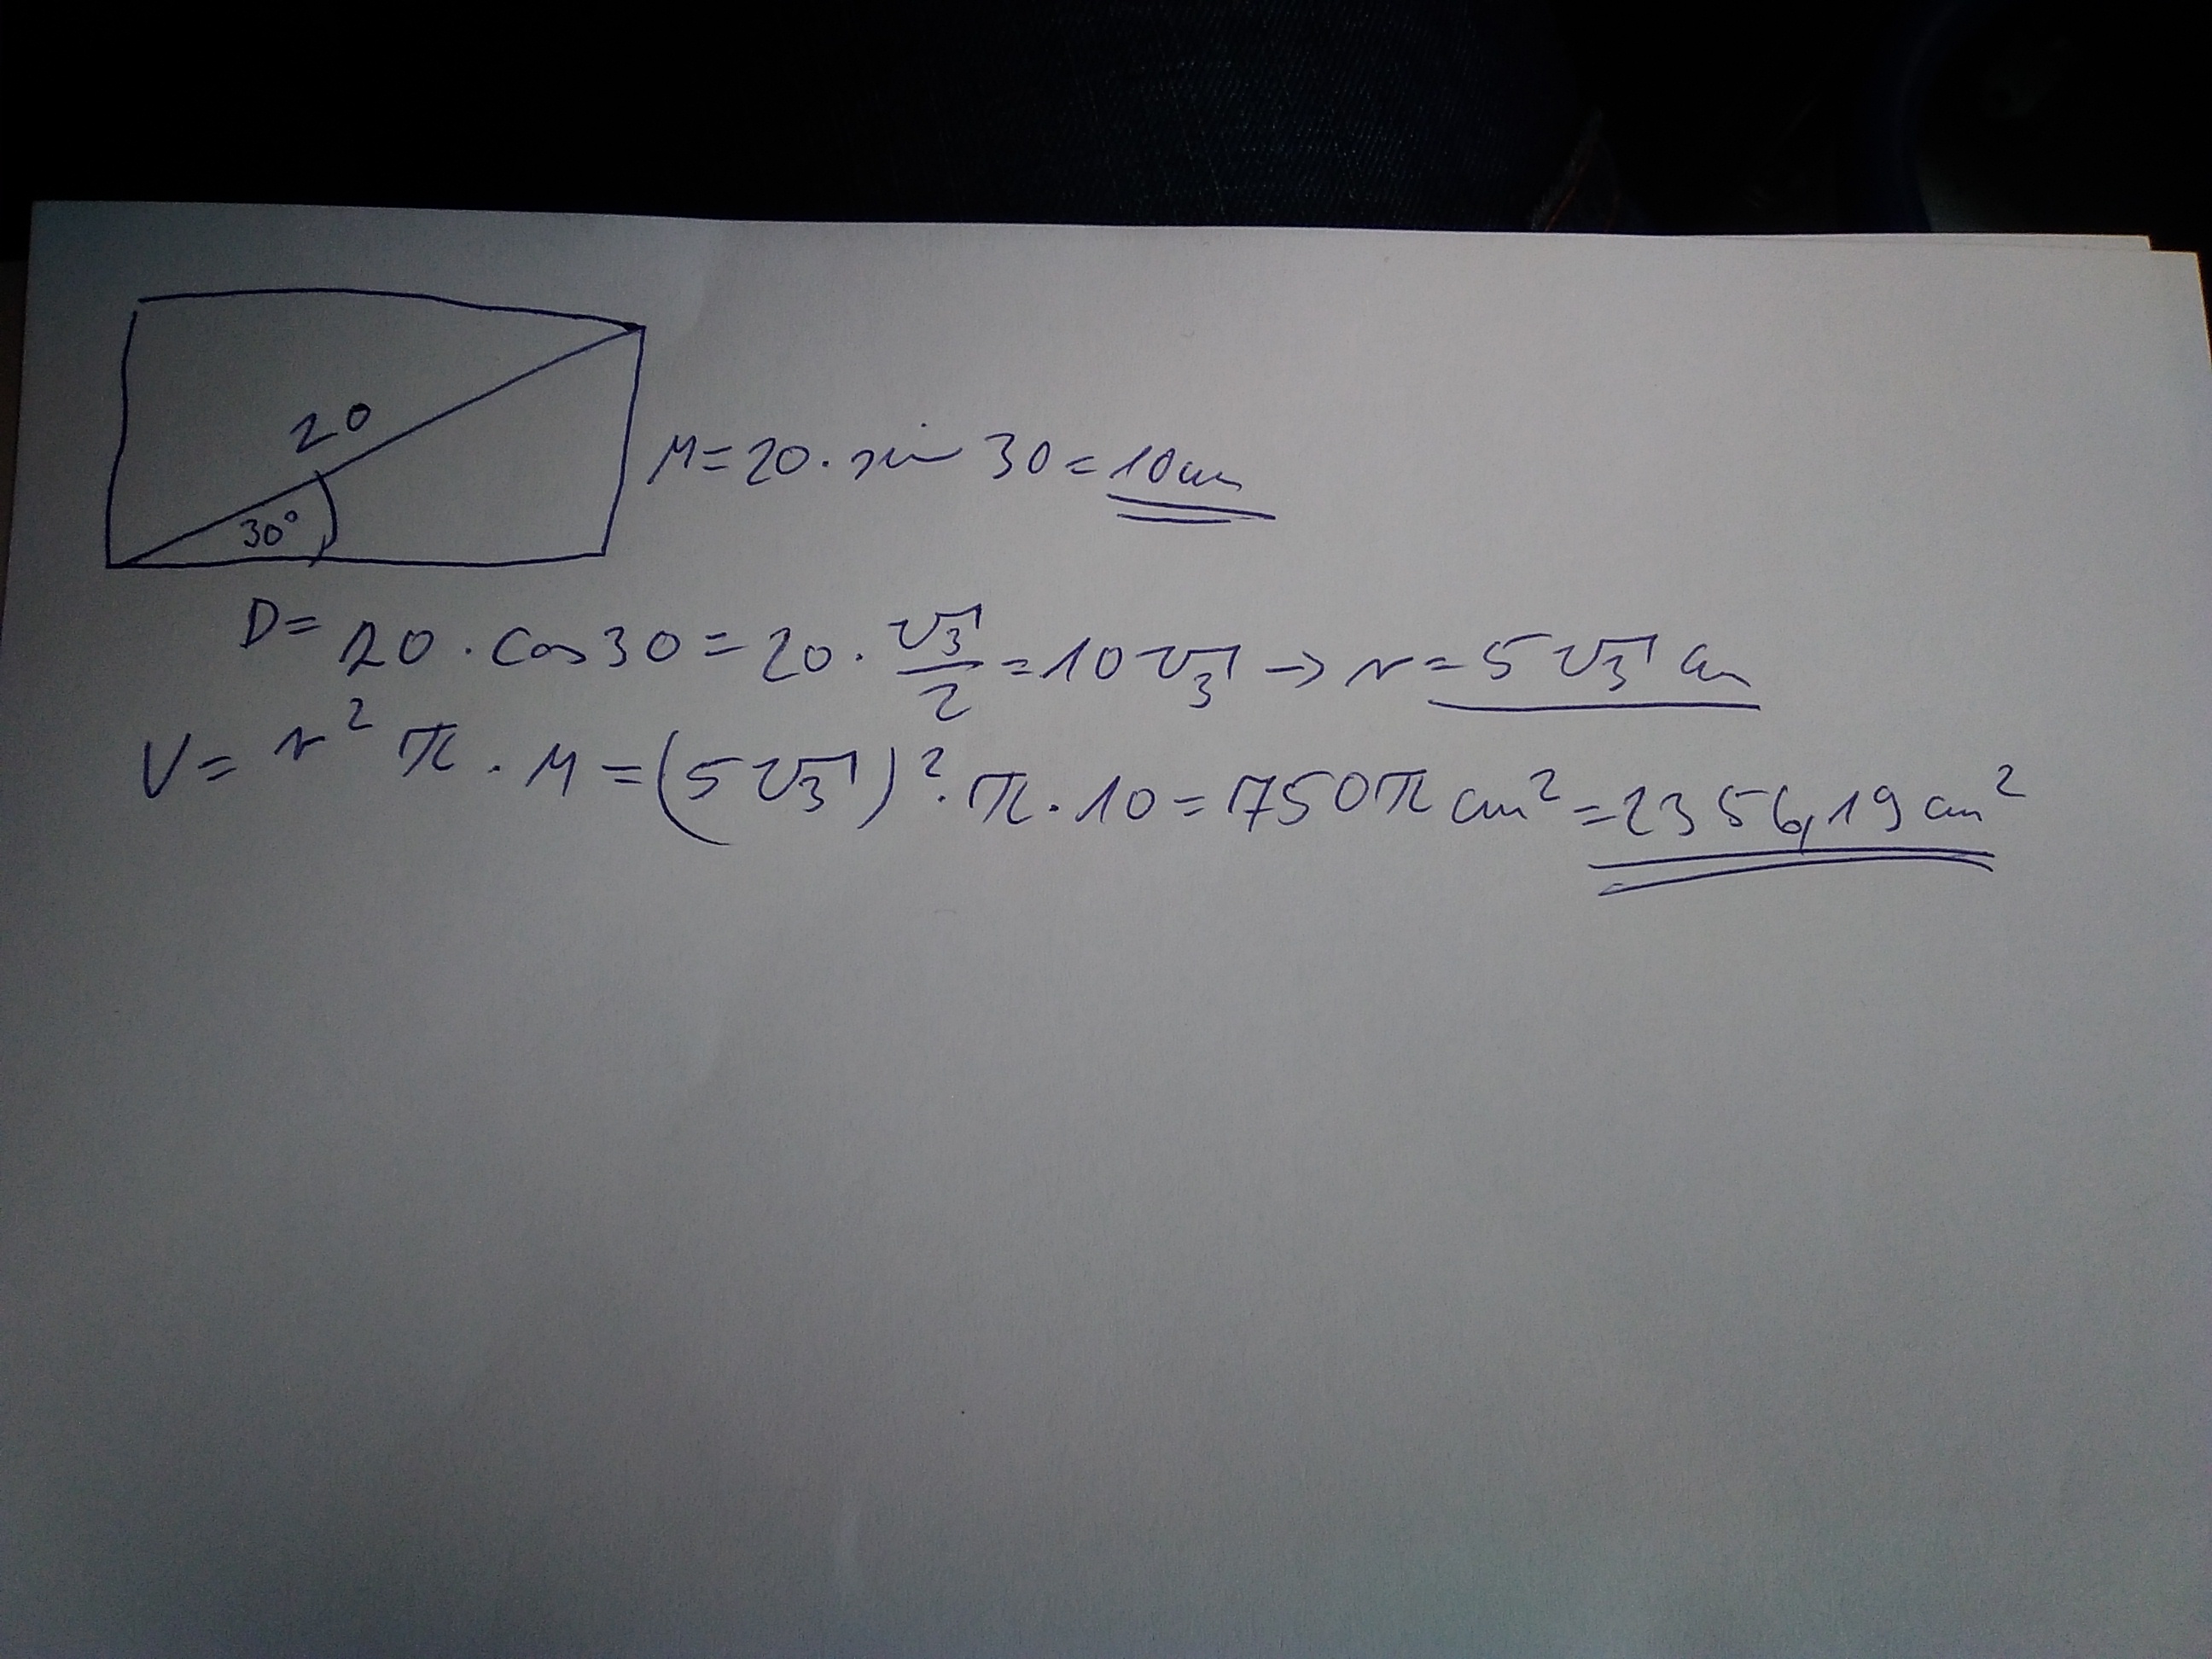 20
30°
M=20·sin 30=10cm
D=20·cos30=20·√3/2=10√3→r=5√3 cm
V=r²π·M=(5√3)²·π·10=750π cm²=2356,19 cm²